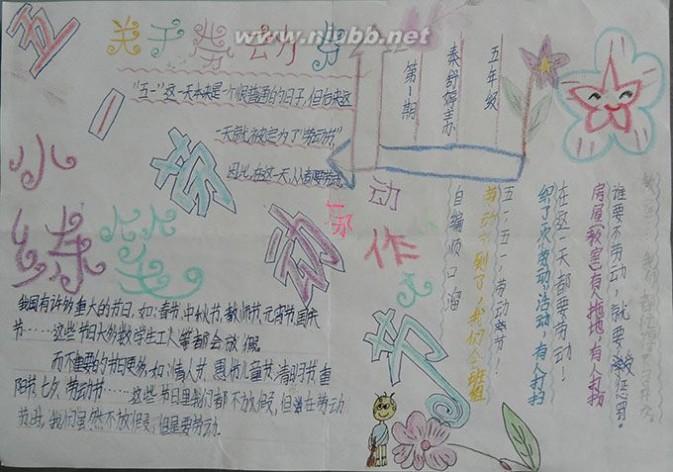 五一劳动节
关于劳动的
www.niubb.net
"五一"这一天本来是一个很普通的日子,但后来这
一天就被定为了"劳动节"
因此,在这一天,人们都要劳动
第1期
秦舒婷主办
五年级
小练笔
我国有许多重大的节日,如:春节,中秋节,教师节,元宵节,国庆
节……这些节日大多数学生工人等都会放假.
而不重要的节日更多,如:情人节,愚人节,儿童节,清明节,重
阳节,七夕,劳动节……这些节日里我们都不放假,但
我们虽然不放假,但是要劳动.
写作
自编顺口溜
五一五一,劳动节!
劳动节到了,我们
在这一天都要劳动!
活动,有人打扫
房屋(教室)有人拖地,有人打扫
谁要不劳动,就要被惩罚.